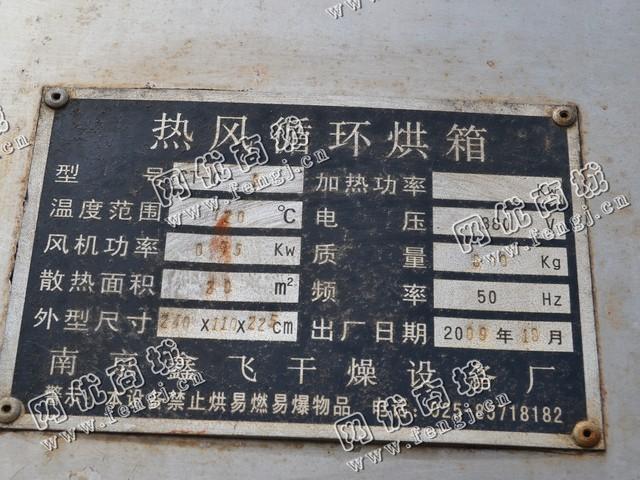 热风循环烘箱
型号 加热功率
温度范围 20 ℃ 电压
风机功率 Kw 质量 Kg
散热面积 20 m² 频率 50 Hz
外型尺寸 240 X110X225cm 出厂日期 2009年10月
南京鑫飞干燥设备厂
警示:本设备禁止烘易燃易爆物品 电话:
网优商城
www.fengj.cn
网优商城
www.fengj.cn
网优商城
www.fengj.cn
网优商城
www.fengj.cn
网优商城
www.fengj.cn